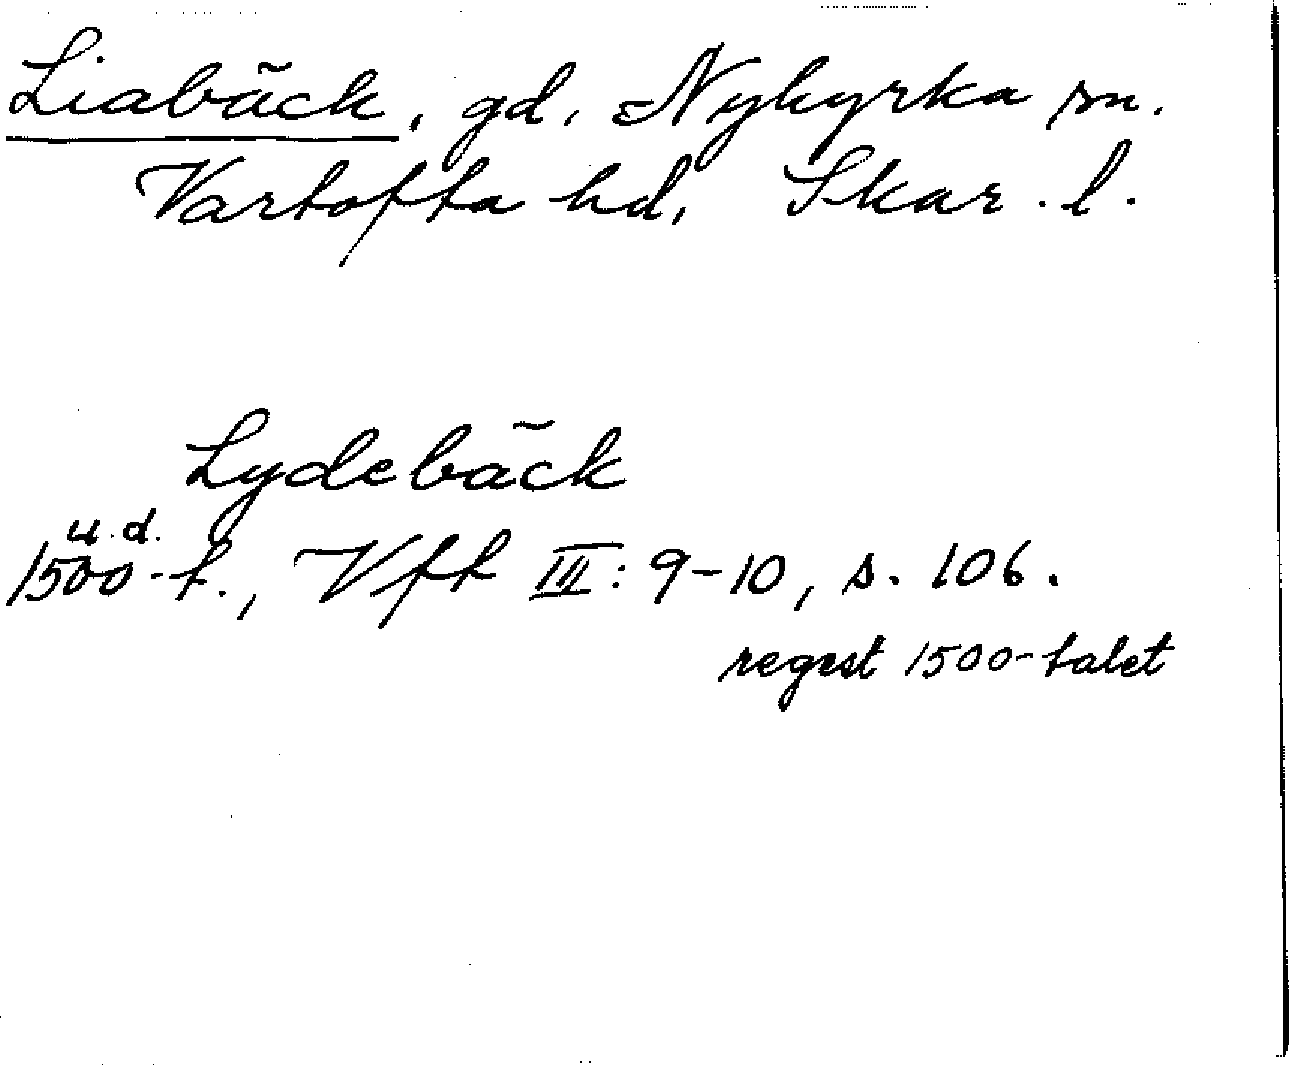 Liabäck, gd, Nykyrka sn.
Vartofta hd, Skar. l.
Lydebäck
u.d.
1500-t., Vft III: 9-10, s. 106.
regest 1500-talet